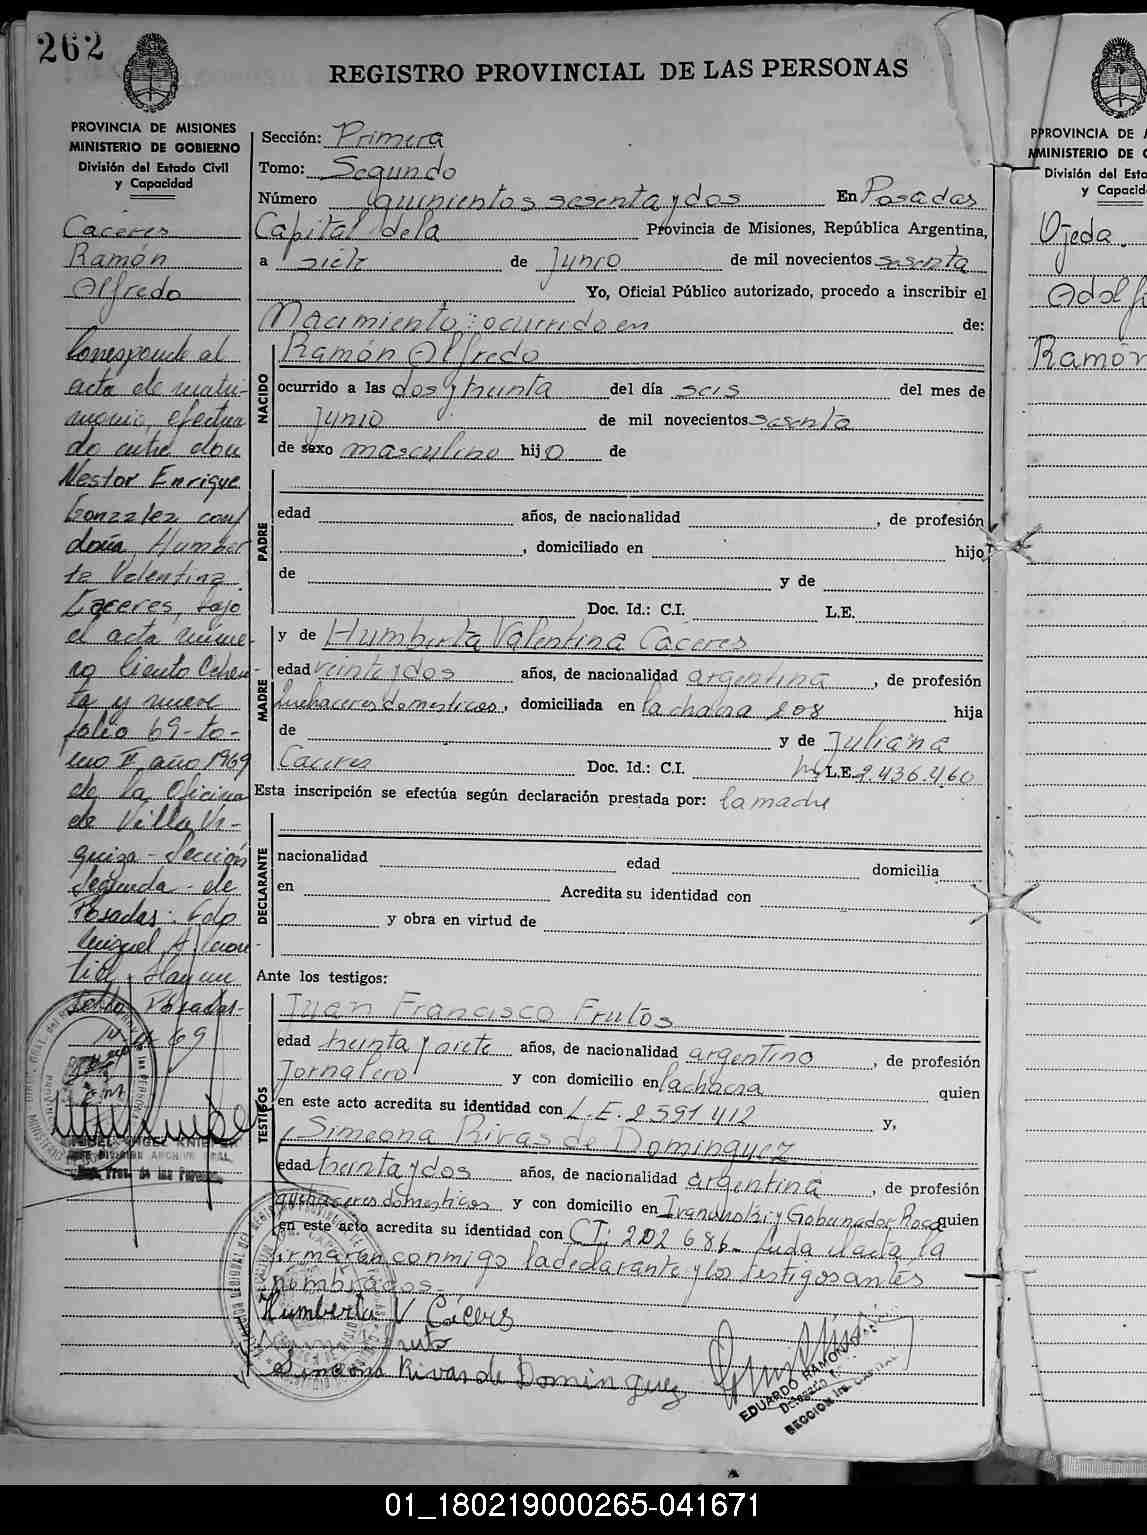 262
REGISTRO PROVINCIAL DE LAS PERSONAS
PROVINCIA DE MISIONES
MINISTERIO DE GOBIERNO
División del Estado Civil
y Capacidad
Caceres
Ramón
Alfredo
Corresponde al
acta de matri-
monio, efectua
do entre don
Nestor Enrique
Gonzalez con
doña Humber
ta Valentina
Caceres, bajo
el acta núme-
ro Ciento Ochen-
ta y nueve
folio 69-to-
mo II año 1969
de la Oficina
de Villa Ur-
quiza - Sección
Segunda - de
Posadas: Fdo
Miguel A.
Posadas-
69
Sección: Primera
Tomo: Segundo
Número quinientos sesenta y dos En Posadas
Capital de la Provincia de Misiones, República Argentina,
a siete de Junio de mil novecientos sesenta
Yo, Oficial Público autorizado, procedo a inscribir el
Nacimiento: ocurrido en de:
NACIDO
Ramón Alfredo
ocurrido a las dos y treinta del día seis del mes de
Junio de mil novecientos sesenta
de sexo masculino hijo de
PADRE
edad años, de nacionalidad , de profesión
, domiciliado en hijo
de y de
Doc. Id.: C.I. L.E.
MADRE
y de Humberta Valentina Caceres
edad veinte y dos años, de nacionalidad argentina, de profesión
Quehaceres domesticos, domiciliada en la chacra 208 hija
de y de Juliana
Caceres Doc. Id.: C.I. L.E. 2.436.460
Esta inscripción se efectúa según declaración prestada por: la madre
DECLARANTE
nacionalidad edad domicilia
en Acredita su identidad con
y obra en virtud de
Ante los testigos:
TESTIGOS
Juan Francisco Frutos
edad treinta y siete años, de nacionalidad argentino, de profesión
Jornalero y con domicilio en la chacra quien
en este acto acredita su identidad con L.E. 2591412 y,
Simeona Rivas de Dominguez
edad treinta y dos años, de nacionalidad argentina, de profesión
quehaceres domesticos y con domicilio en y Gobernador Roca quien
en este acto acredita su identidad con CI: 202686- Leida el acta la
firmaran conmigo la declarante y los testigos antes
nombrados-
Humberta V Cáceres
Simeona Rivas de Dominguez
EDUARDO RAMON
SECCION
PROVINCIA DE
MINISTERIO DE
División del Esta
y Capacid
Ojeda.
Adolf
Ramón
01_180219000265-041671